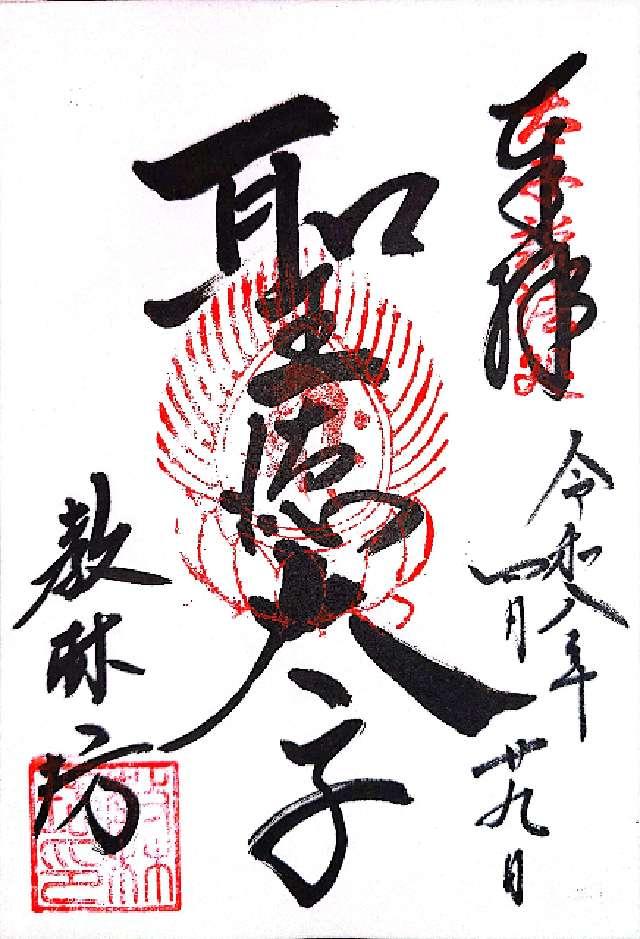 奉拝
令和八年
四月廿九日
聖徳太子
教林坊